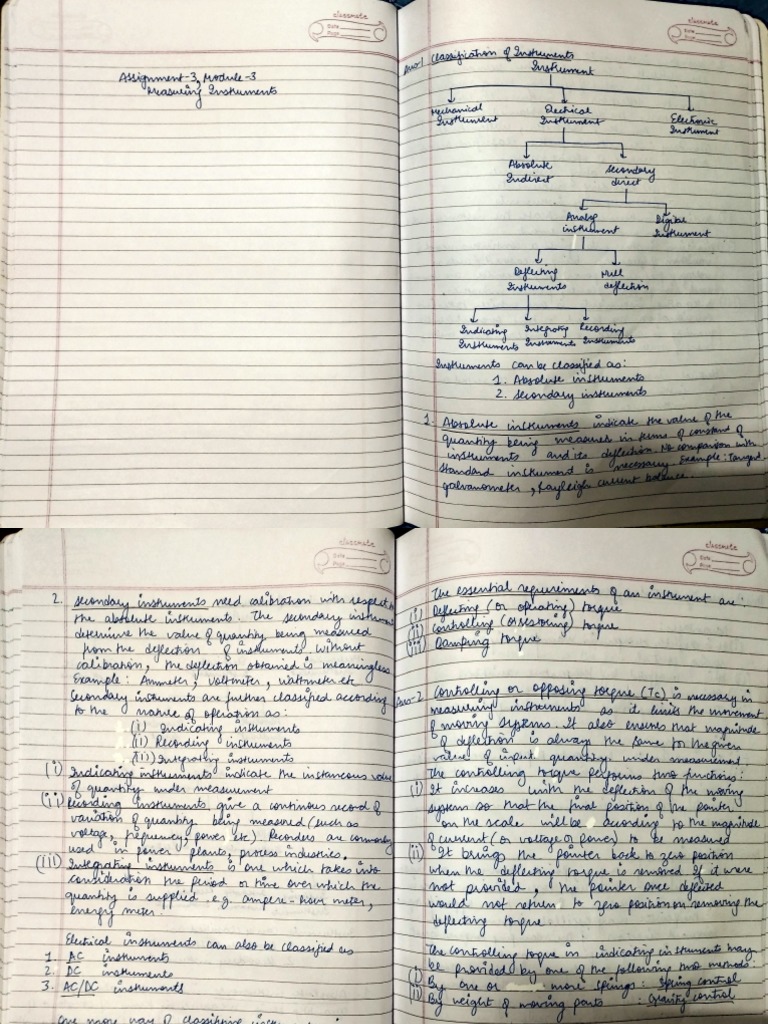 classmate
Date
Page
Assignment-3, Module-3
Measuring Instruments
classmate
Date
Page
Ans-1 Classification of Instruments
Instrument
Mechanical Electrical Electronic
Instrument Instrument Instrument
Absolute Secondary
Indirect direct
Analog Digital
instrument Instrument
Deflecting Null
Instruments deflection
Indicating Integrating Recording
Instruments Instruments Instruments
Instruments can be classified as:
1. Absolute instruments
2. Secondary instruments
1. Absolute instruments indicate the value of the
quantity being measures in terms of constant of
instruments and its deflection. No comparison with
standard instrument is necessary. Example: Tangent
galvanometer, Rayleigh current balance.
classmate
Date
Page
2. Secondary instruments need calibration with respect to
the absolute instruments. The secondary instrum
determine the value of quantity being measured
from the deflection of instruments. Without
calibration, the deflection obtained is meaningless
Example: Ammeter, voltmeter, wattmeter etc
Secondary instruments are further classified according
to the nature of operation as:
(i) Indicating instruments
(ii) Recording instruments
(iii) Integrating instruments
(i) Indicating instruments indicate the instaneous value
of quantity under measurement
(ii) Recording instruments give a continous record of
variation of quantity being measured (such as
voltage, frequency, power etc). Recorders are commonly
used in power plants, process industries.
(iii) Integrating instruments is one which takes into
consideration the period or time over which the
quantity is supplied. e.g. ampere-hour meter,
energy meter
Electrical instruments can also be classified as
1. AC instruments
2. DC instruments
3. AC/DC instruments
One more way of classifying
classmate
Date
Page
The essential requirements of an instrument are:
(i) Deflecting (or operating) torque
(ii) Controlling (or restoring) torque
(iii) Damping torque
Ans-2 Controlling or opposing torque (Tc) is necessary in
measuring instruments as it limits the movement
of moving systems. It also ensures that magnitude
of deflection is always the same for the given
value of input quantity under measurement.
The controlling torque performs two functions:
(i) It increases with the deflection of the moving
system so that the final position of the pointer
on the scale will be according to the magnitude
of current (or voltage or power) to be measured
(ii) It brings the pointer back to zero position
when the deflecting torque is removed. If it were
not provided, the pointer once deflected
would not return to zero position on removing the
deflecting torque.
The controlling torque in indicating instruments may
be provided by one of the following two methods:
(i) By one or more springs : Spring control
(ii) By weight of moving parts : Gravity control